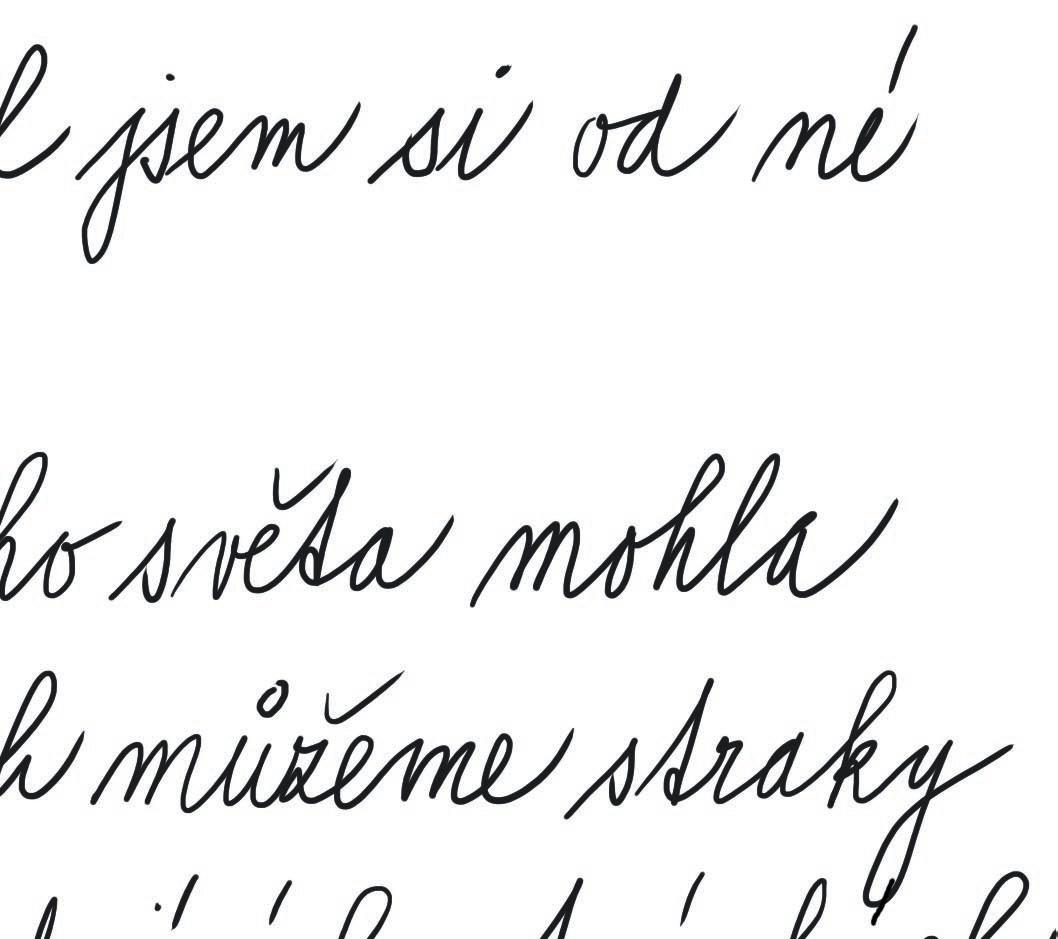 jsem si od né
ho světa mohla
můžeme straky